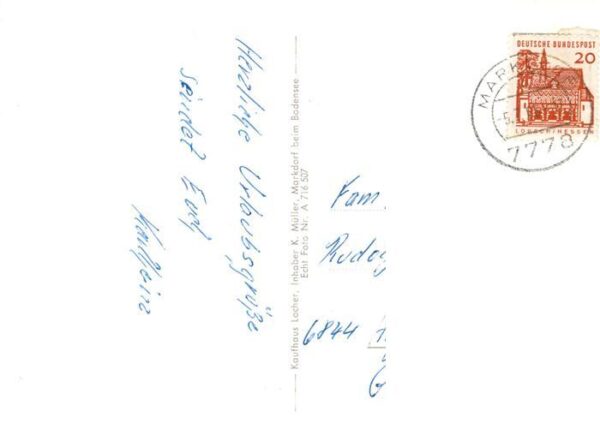 Herzliche Urlaubsgrüße
sendet Euch
Karlheinz
Kaufhaus Locher, Inhaber K. Müller, Markdorf beim Bodensee
Echt Foto Nr. A 716 507
DEUTSCHE BUNDESPOST
20
LORSCH/HESSEN
MARK
7778
Fam.
6844